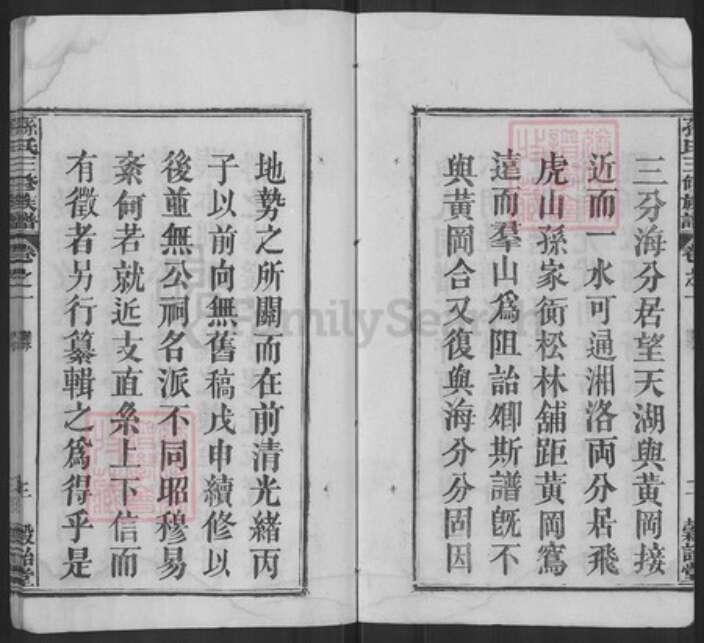 孫氏三修族譜 卷之一 二 穀詒堂
三分海分居望天湖與黃岡接
近而一水可通湘洛両分居飛
虎山孫家衖松林舖距黃岡寫
遠而羣山為阻詒卿斯譜既不
與黃岡合又復與海分分固因
地勢之所關而在前清光緒丙
子以前向無舊稿戊申續修以
後並無公祠名派不同昭穆易
紊何若就近支直系上下信而
有徵者另行纂輯之為得乎是
孫氏三修族譜 卷之一 三 穀詒堂
FamilySearch